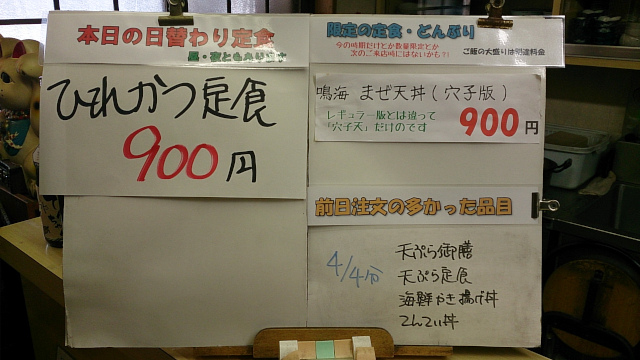 本日の日替わり定食
昼・夜ともあります
ひれかつ定食
900円
限定の定食・どんぶり
今の時期だけとか数量限定とか
次のご来店時にはないかも?!
ご飯の大盛りは別途料金
鳴海 まぜ天丼(穴子版)
レギュラー版とは違って
「穴子天」だけのです
900円
前日注文の多かった品目
4/4分
天ぷら御膳
天ぷら定食
海鮮かき揚げ丼